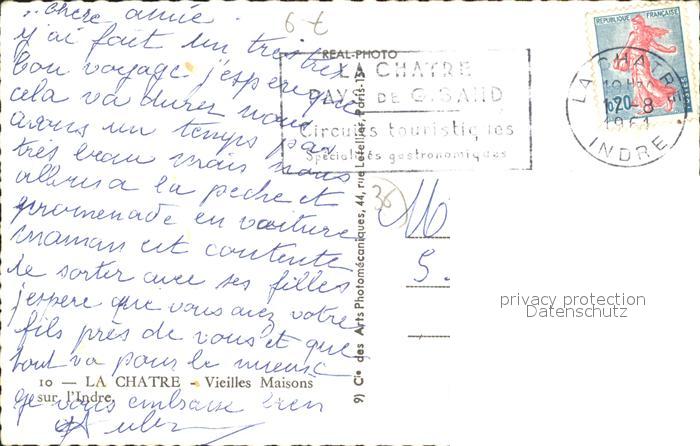 chère amie
j'ai fait un très très
bon voyage j'espère que
cela va durer nous
avons un temps pas
très beau mais nous
allons a la pêche et
promenade en voiture
maman est contente
de sortir avec ses filles
j'espère que vous avez votre
fils près de vous et que
tout va pour le mieux
je vous embrasse bien
10 — LA CHATRE - Vieilles Maisons
sur l'Indre
6 €
REAL-PHOTO
9) Cie des Arts Photomécaniques, 44, rue Letellier, Paris-15
LA CHATRE
PAYS DE G. SAND
Circuits touristiques
Spécialités gastronomiques
REPUBLIQUE FRANÇAISE
0,20
LA CHATRE
-8
1961
INDRE
36
M
5.
privacy protection
Datenschutz